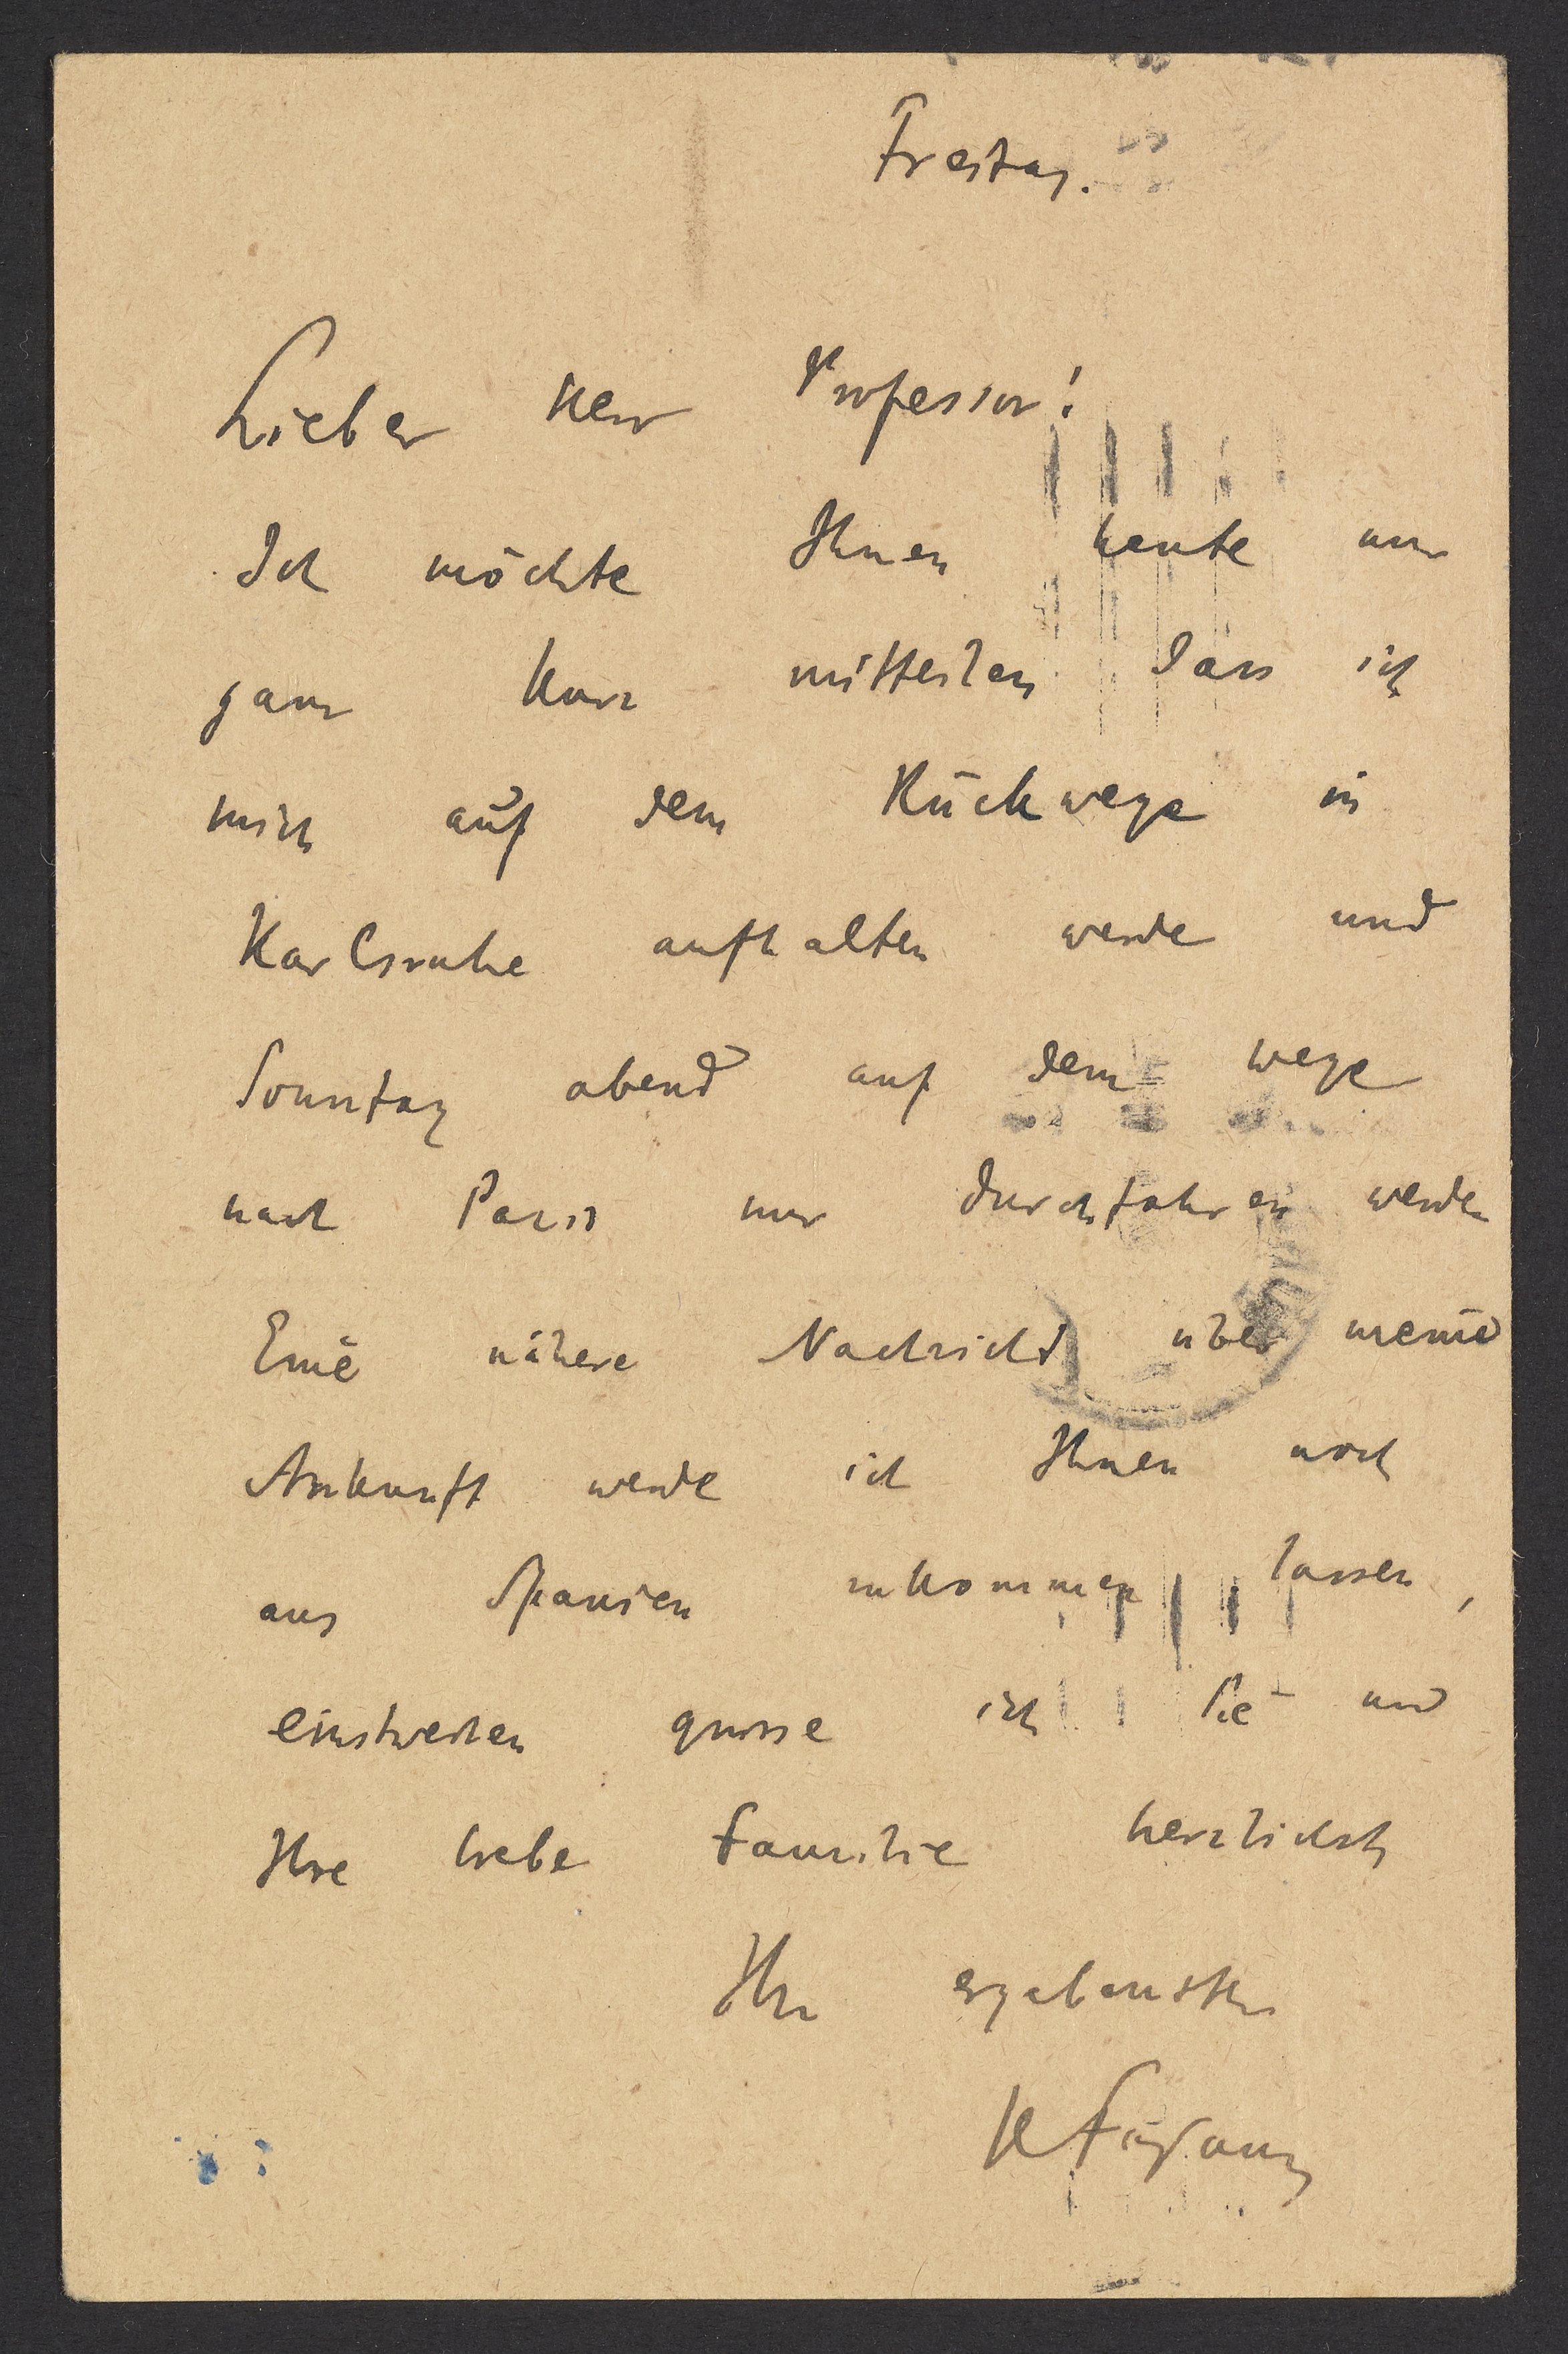 Freitag.
Lieber Herr Professor!
Ich möchte Ihnen heute nur
ganz kurz mitteilen dass ich
mich auf dem Rückwege in
Karlsruhe aufhalten werde und
Sonntag abend auf dem wege
nach Paris nur durchfahren werde
Eine nähere Nachricht über meine
Ankunft werde ich Ihnen noch
aus Spanien zukommen lassen,
einstweilen grüsse ich Sie und
Ihre liebe Familie herzlichst
Ihr ergebenster